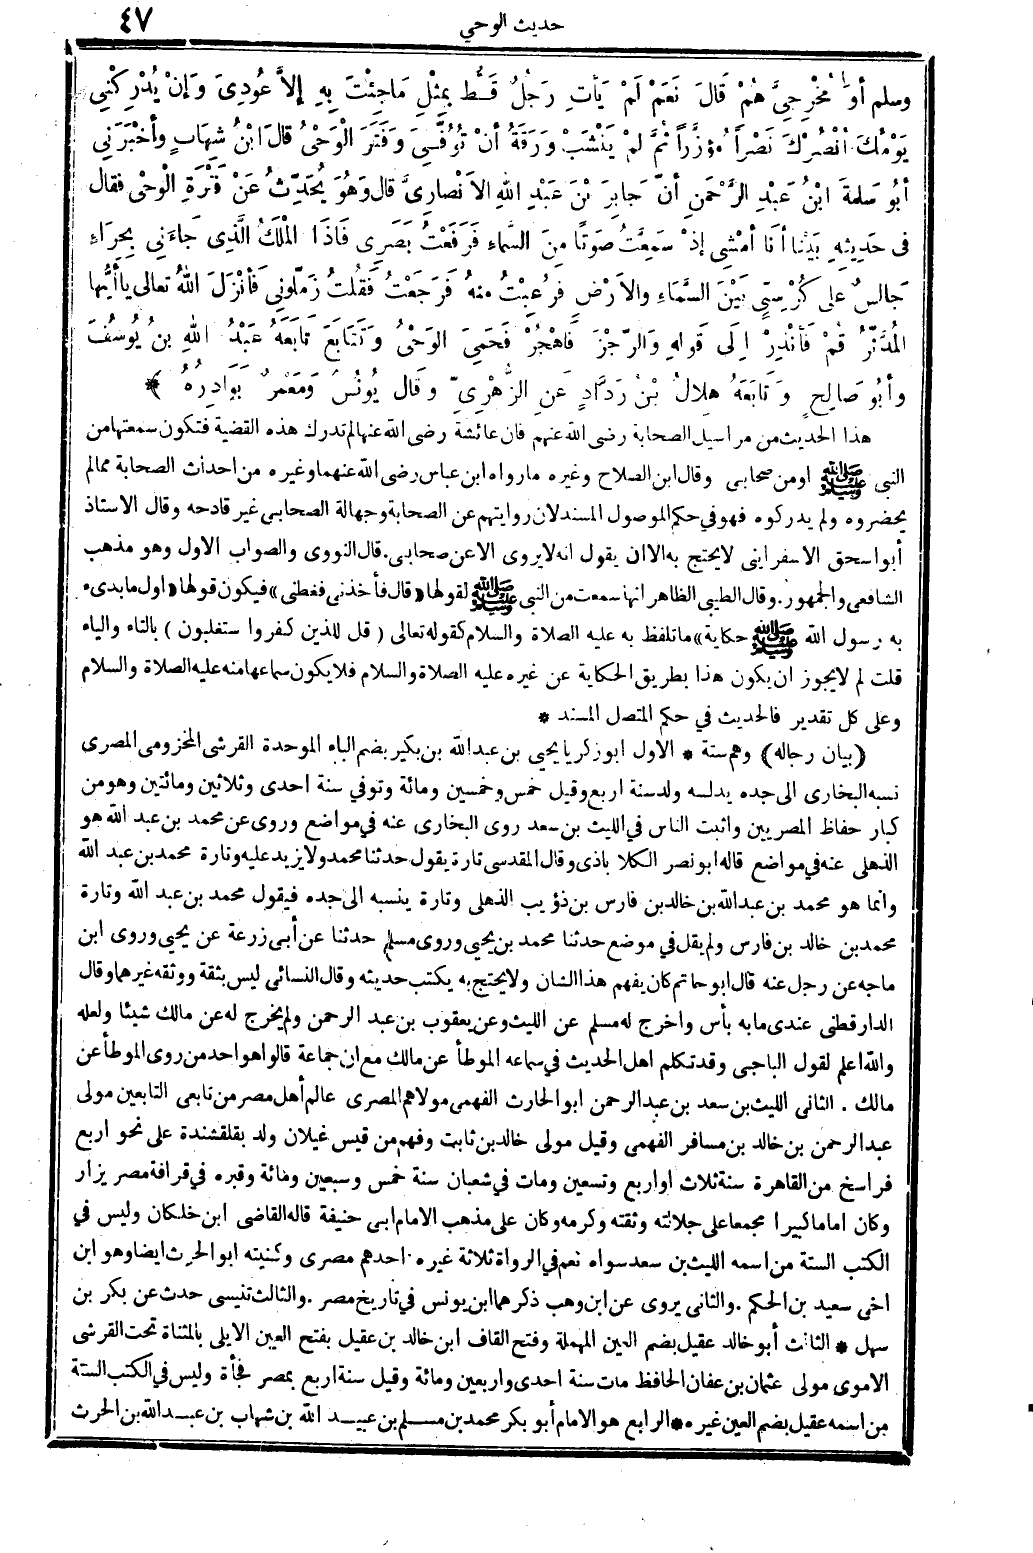 حديث الوحي
٤٧
وسلم أَوَ مُخْرِجِيَّ هُمْ قَالَ نَعَمْ لَمْ يَأْتِ رَجُلٌ قَطُّ بِمِثْلِ مَاجِئْتَ بِهِ إلاَّ عُودِىَ وَإِنْ يُدْرِكْنِي
يَوْمُكَ أَنْصُرْكَ نَصْراً مُؤَزَّراً ثُمَّ لَمْ يَنْشَبْ وَرَقَةُ أَنْ تُوُفِّيَ وَفَتَرَ الْوَحْىُ قالَ ابْنُ شِهَابٍ وأَخْبَرَنِي
أَبُو سَلَمَةَ ابْنُ عَبْدِ الرَّحْمَنِ أَنَّ جَابِرَ بْنَ عَبْدِ اللهِ الاَنْصَارِىَّ قالَ وَهُوَ يُحَدِّثُ عَنْ فَتْرَةِ الْوَحْىِ فقال
فى حَدِيثِهِ بَيْنَا أَنَا أَمْشِي إذْ سَمِعْتُ صَوْتًا مِنَ السَّمَاءِ فَرَفَعْتُ بَصَرِى فَاذَا الْمَلَكُ الَّذِى جَاءَنِي بِحِرَاءِ
جَالِسٌ على كُرْسِيٍّ بَيْنَ السَّمَاءِ والاَرْضِ فَرُعِبْتُ مِنْهُ فَرَجَعْتُ فَقُلْتُ زَمِّلُونِي فَأَنْزَلَ اللهُ تعالى ياأَيُّهَا
الْمُدَّثِّرُ قُمْ فَأَنْذِرْ إلَى قَوْلِهِ وَالرِّجْزَ فَاهْجُرْ فَحَمِيَ الوَحْىُ وَتَتَابَعَ تَابَعَهُ عَبْدُ اللهِ بنُ يُوسُفَ
وأَبُو صَالِحٍ وَتَابَعَهُ هِلاَلُ بْنُ رَدَّادٍ عَنِ الزُّهْرِيِّ وقَال يُونُسُ وَمَعْمَرٌ بَوَادِرُهُ *
هذا الحديث من مراسيل الصحابة رضى الله عنهم فان عائشة رضى الله عنها لم تدرك هذه القضية فتكون سمعتها من
النبى ﷺ او من صحابى وقال ابن الصلاح وغيره مارواه ابن عباس رضى الله عنهما وغيره من احداث الصحابة ممالم
يحضروه ولم يدركوه فهو في حكم الموصول المسند لان روايتهم عن الصحابة وجهالة الصحابى غير قادحه وقال الاستاذ
أبو اسحق الاسفراينى لا يحتج به الاان يقول انه لا يروى الاعن صحابى. قال النووى والصواب الاول وهو مذهب
الشافعى والجمهور. وقال الطيبى الظاهر انها سمعت من النبى ﷺ لقولها «قال فأخذنى فغطنى» فيكون قولها «اول مابدىء
به رسول الله ﷺ حكاية» ماتلفظ به عليه الصلاة والسلام كقوله تعالى (قل للذين كفروا ستغلبون) بالتاء والياء
قلت لم لايجوز ان يكون هذا بطريق الحكاية عن غيره عليه الصلاة والسلام فلا يكون سماعها منه عليه الصلاة والسلام
وعلى كل تقدير فالحديث في حكم المتصل المسند *
(بيان رجاله) وهم ستة * الاول ابو زكريا يحيى بن عبدالله بن بكير بضم الباء الموحدة القرشى المخزومى المصرى
نسبه البخارى الى جده يدلسه ولد سنة اربع وقيل خمس وخمسين ومائة وتوفي سنة احدى وثلاثين ومائتين وهو من
كبار حفاظ المصريين واثبت الناس في الليث بن سعد روى البخارى عنه في مواضع وروى عن محمد بن عبد الله هو
الذهلى عنه في مواضع قاله ابو نصر الكلا باذى وقال المقدسى تارة يقول حدثنا محمد ولا يزيد عليه وتارة محمد بن عبد الله
وانما هو محمد بن عبدالله بن خالد بن فارس بن ذؤيب الذهلى وتارة ينسبه الى جده فيقول محمد بن عبد الله وتارة
محمد بن خالد بن فارس ولم يقل في موضع حدثنا محمد بن يحيى وروى مسلم حدثنا عن أبى زرعة عن يحيى وروى ابن
ماجه عن رجل عنه قال ابو حاتم كان يفهم هذا الشان ولا يحتج به يكتب حديثه وقال النسائى ليس بثقة ووثقه غيرهما وقال
الدارقطنى عندى مابه بأس واخرج له مسلم عن الليث وعن يعقوب بن عبد الرحمن ولم يخرج له عن مالك شيئا ولعله
والله اعلم لقول الباجى وقد تكلم اهل الحديث في سماعه الموطأ عن مالك مع ان جماعة قالوا هو احد من روى الموطأ عن
مالك . الثانى الليث بن سعد بن عبد الرحمن ابو الحارث الفهمى مولاهم المصرى عالم أهل مصر من تابعى التابعين مولى
عبدالرحمن بن خالد بن مسافر الفهمى وقيل مولى خالد بن ثابت وفهم من قيس غيلان ولد بقلقشندة على نحو اربع
فراسخ من القاهرة سنة ثلاث او اربع وتسعين ومات في شعبان سنة خمس وسبعين ومائة وقبره في قرافة مصر يزار
وكان اماما كبيرا مجمعا على جلالته وثقته وكرمه وكان على مذهب الامام ابى حنيفة قاله القاضى ابن خلكان وليس في
الكتب الستة من اسمه الليث بن سعد سواه نعم في الرواة ثلاثة غيره احدهم مصرى وكنيته ابو الحرث ايضا وهو ابن
اخى سعيد بن الحكم . والثانى يروى عن ابن وهب ذكرهما ابن يونس في تاريخ مصر . والثالث تنيسى حدث عن بكر بن
سهل * الثالث أبو خالد عقيل بضم العين المهملة وفتح القاف ابن خالد بن عقيل بفتح العين الايلى بالمثناة تحت القرشى
الاموى مولى عثمان بن عفان الحافظ مات سنة احدى واربعين ومائة وقيل سنة اربع بمصر فجأة وليس في الكتب الستة
من اسمه عقيل بضم العين غيره * الرابع هو الامام أبو بكر محمد بن مسلم بن عبيد الله بن شهاب بن عبدالله بن الحرث